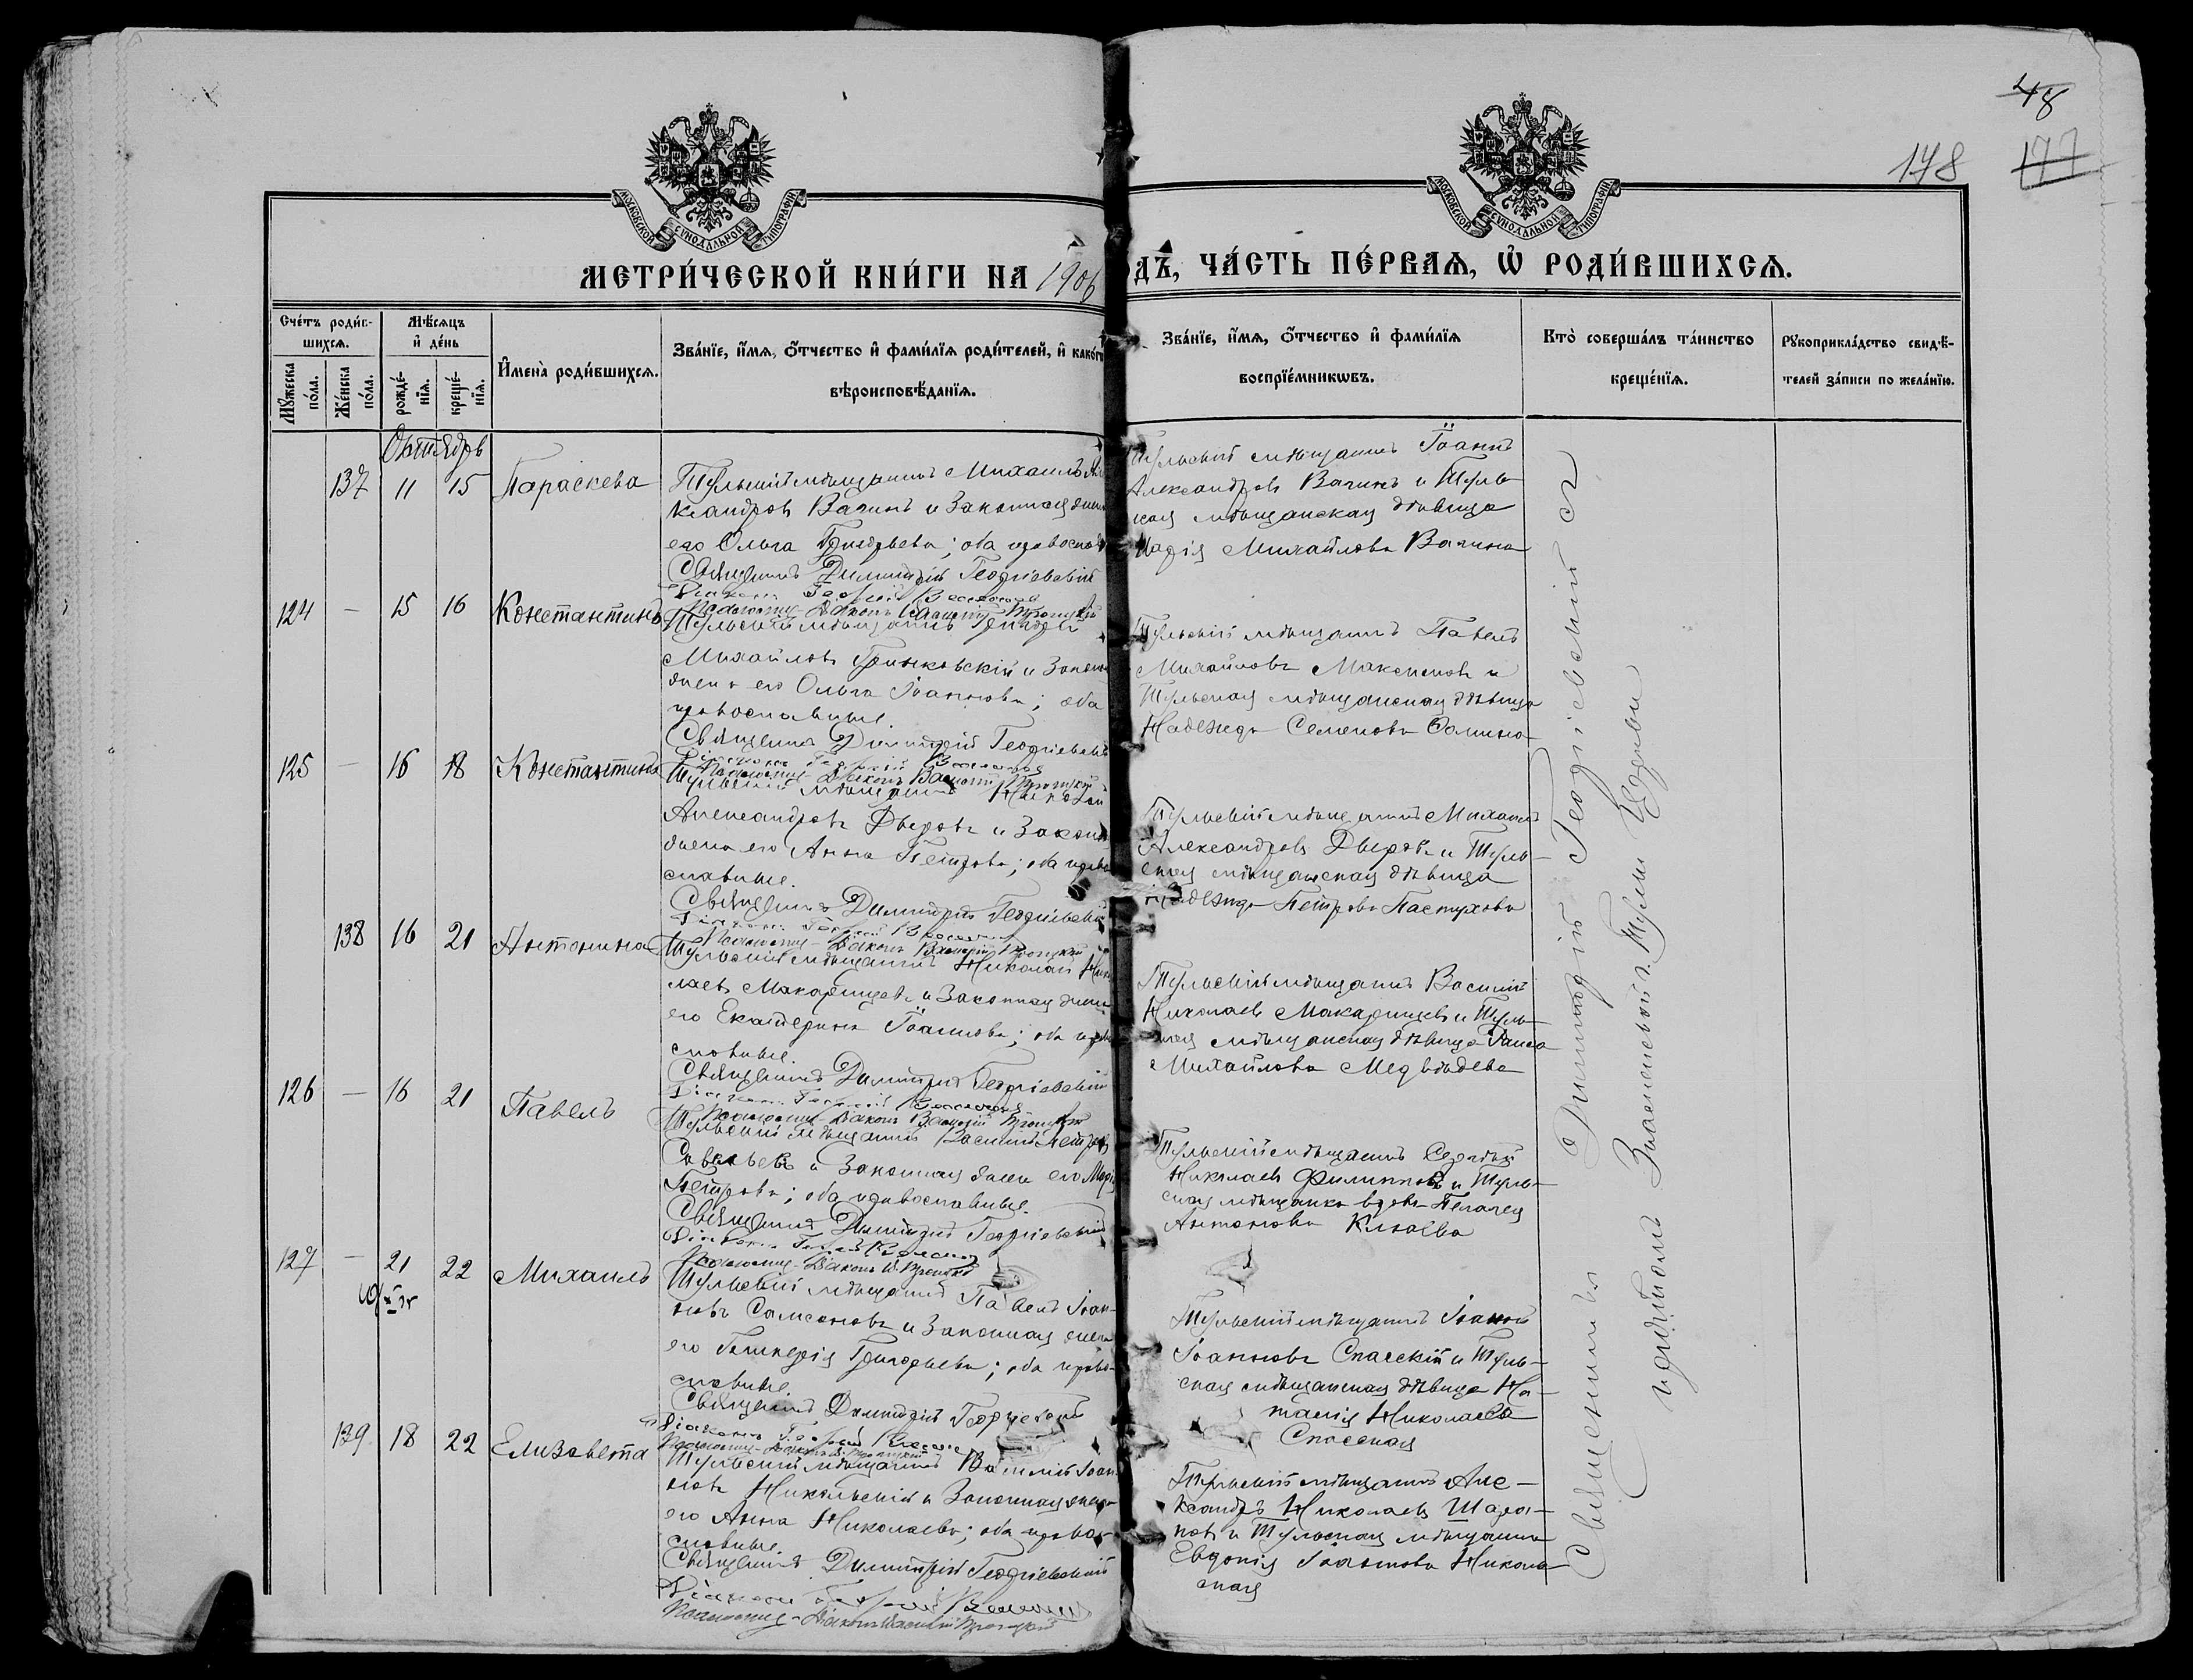 48
178 177
МОСКОВСКОЙ СУНОДАЛЬНОЙ ТИПОГРАФІИ
МОСКОВСКОЙ СУНОДАЛЬНОЙ ТИПОГРАФІИ
МЕТРИ́ЧЕСКОЙ КНИ́ГИ НА 1906
ДѢ, ЧА́СТЬ ПЕ́РВАѦ, Ѡ҆ РОДИ́ВШИХСѦ.
Сче́тъ роди́в-
шихсѧ.
Мꙋ́жеска по́ла.
Же́нска по́ла.
Мѣ́сѧцъ
и҆ де́нь
рожде́-
нїѧ.
креще́-
нїѧ.
И҆мена̀ роди́вшихсѧ.
Зва́нїе, и҆́мѧ, ѻ҆́тчество и҆ фами́лїѧ роди́телей, и҆ како́гѡ
вѣроисповѣ́данїѧ.
Зва́нїе, и҆́мѧ, ѻ҆́тчество и҆ фами́лїѧ
воспрїе́мникѡвъ.
Кто̀ соверша́лъ та́инство
креще́нїѧ.
Рꙋкоприкла́дство свидѣ́-
телей за́писи по жела́нїю.
Октябрь
137 11 15 Параскева
Тульскій мѣщанинъ Михаилъ Але
ксандровъ Вагинъ и Законная жена
его Ольга Григорьева; оба православ
Священникъ Димитрій Георгіевскій
Діаконъ Георгій
Псаломщ.-Діаконъ Василій Троицкій
Тульскій мѣщанинъ Іоаннъ
Александровъ Вагинъ и Туль-
ская мѣщанская дѣвица
Марія Михайлова Вагина
124 — 15 16 Константинъ
Тульскій мѣщанинъ Григорій
Михайловъ Гриньковскій и Законн
жена его Ольга Іоаннова; оба
православные.
Священникъ Димитрій Георгіевскій
Діаконъ Георгій
Псаломщ.-Діаконъ Василій Троицкій
Тульскій мѣщанинъ Павелъ
Михайловъ Максимовъ и
Тульская мѣщанская дѣвица
Надежда Семенова Фомина
125 — 16 18 Константинъ
Тульскій мѣщанинъ Николай
Александровъ Дверовъ и Законн
жена его Анна Петрова; оба право
славные.
Священникъ Димитрій Георгіевскій
Діаконъ Георгій
Псаломщ.-Діаконъ Василій Троицкій
Тульскій мѣщанинъ Михаилъ
Александровъ Дверовъ и Туль-
ская мѣщанская дѣвица
Надежда Петрова Пастухова
138 16 21 Антонина
Тульскій мѣщанинъ Николай Нико
лаевъ Макарцевъ и Законная жена
его Екатерина Іоаннова; оба право
славные.
Священникъ Димитрій Георгіевскій
Діаконъ Георгій
Псаломщ.-Діаконъ Василій Троицкій
Тульскій мѣщанинъ Василій
Николаевъ Макарцевъ и Туль-
ская мѣщанская дѣвица Раиса
Михайлова Медвѣдева
126 — 16 21 Павелъ
Тульскій мѣщанинъ Василій Петровъ
Савельевъ и Законная жена его Марія
Петрова; оба православные.
Священникъ Димитрій Георгіевскій
Діаконъ Георгій
Псаломщ.-Діаконъ В. Троицкій
Тульскій мѣщанинъ Сергѣй
Николаевъ Филипповъ и Туль-
ская мѣщанка вдова Пелагея
Антонова Клюева
127 — 21 22 Михаилъ
Тульскій мѣщанинъ Павелъ Іоан-
новъ Самсоновъ и Законная жена
его Гликерія Григорьева; оба право-
славные.
Священникъ Димитрій Георгіевскій
Діаконъ Георгій
Псаломщ.-Діаконъ В. Троицкій
Тульскій мѣщанинъ Іоаннъ
Іоанновъ Спасскій и Туль-
ская мѣщанская дѣвица На-
талія Николаева
Спасская
139 18 22 Елизавета
Тульскій мѣщанинъ Василій Іоан
новъ Никольскій и Законная жена
его Анна Николаева; оба право-
славные.
Священникъ Димитрій Георгіевскій
Діаконъ Георгій
Псаломщ.-Діаконъ Василій Троицкій
Тульскій мѣщанинъ Але-
ксандръ Николаевъ Шара-
повъ и Тульская мѣщанка
Евдокія Іоаннова Николь
ская
Священникъ Димитрій Георгіевскій съ
причтомъ Знаменской г. Тулы Церкви